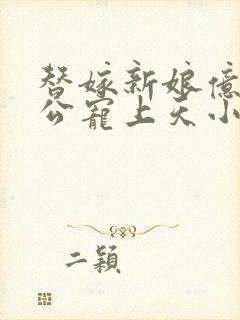 替嫁新娘億
公寵上天小
二穎